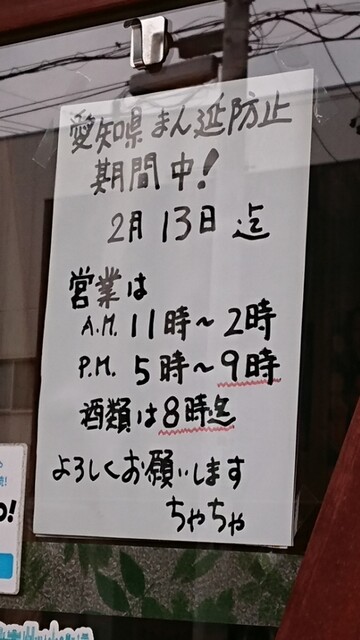 愛知県まん延防止
期間中!
2月13日迄
営業は
A.M. 11時～2時
P.M. 5時～9時
酒類は8時迄
よろしくお願いします
ちゃちゃ